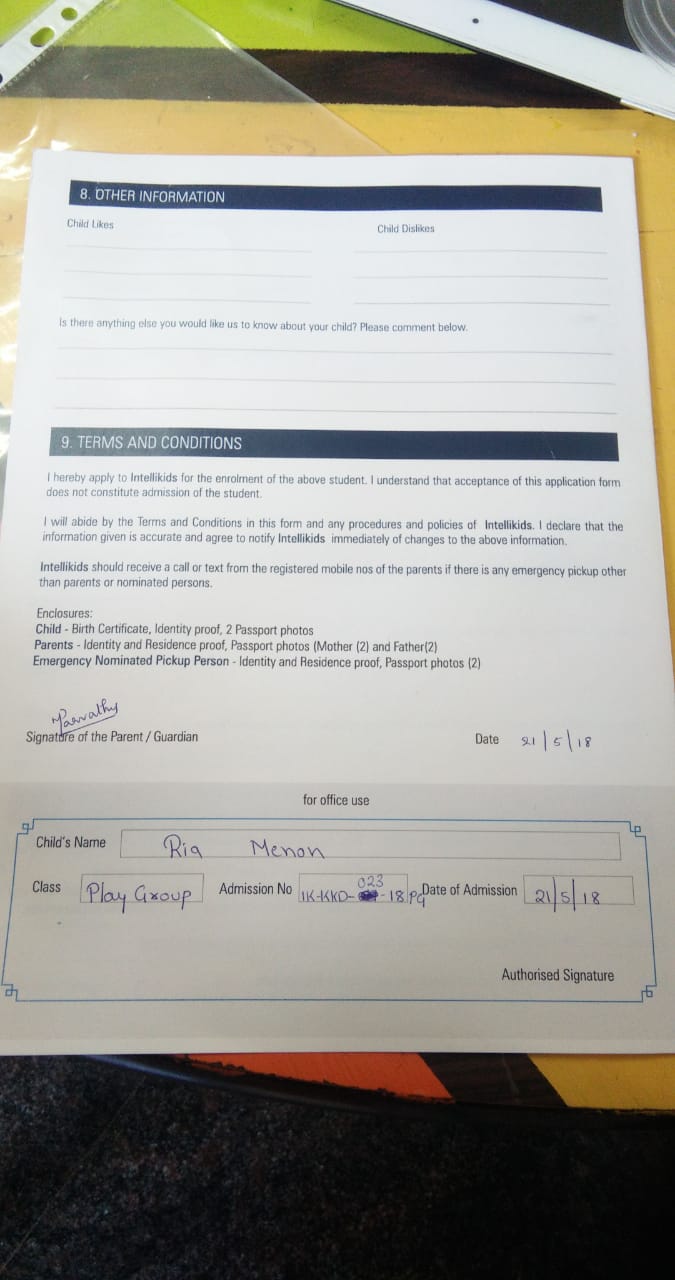 8. OTHER INFORMATION
Child Likes Child Dislikes
Is there anything else you would like us to know about your child? Please comment below.
9. TERMS AND CONDITIONS
I hereby apply to Intellikids for the enrolment of the above student. I understand that acceptance of this application form
does not constitute admission of the student.
I will abide by the Terms and Conditions in this form and any procedures and policies of Intellikids. I declare that the
information given is accurate and agree to notify Intellikids immediately of changes to the above information.
Intellikids should receive a call or text from the registered mobile nos of the parents if there is any emergency pickup other
than parents or nominated persons.
Enclosures:
Child - Birth Certificate, Identity proof, 2 Passport photos
Parents - Identity and Residence proof, Passport photos (Mother (2) and Father(2)
Emergency Nominated Pickup Person - Identity and Residence proof, Passport photos (2)
Parvathy
Signature of the Parent / Guardian Date 21/5/18
for office use
Child's Name Ria Menon
Class Play Group Admission No IK-KKD-023-18 PG Date of Admission 21/5/18
Authorised Signature